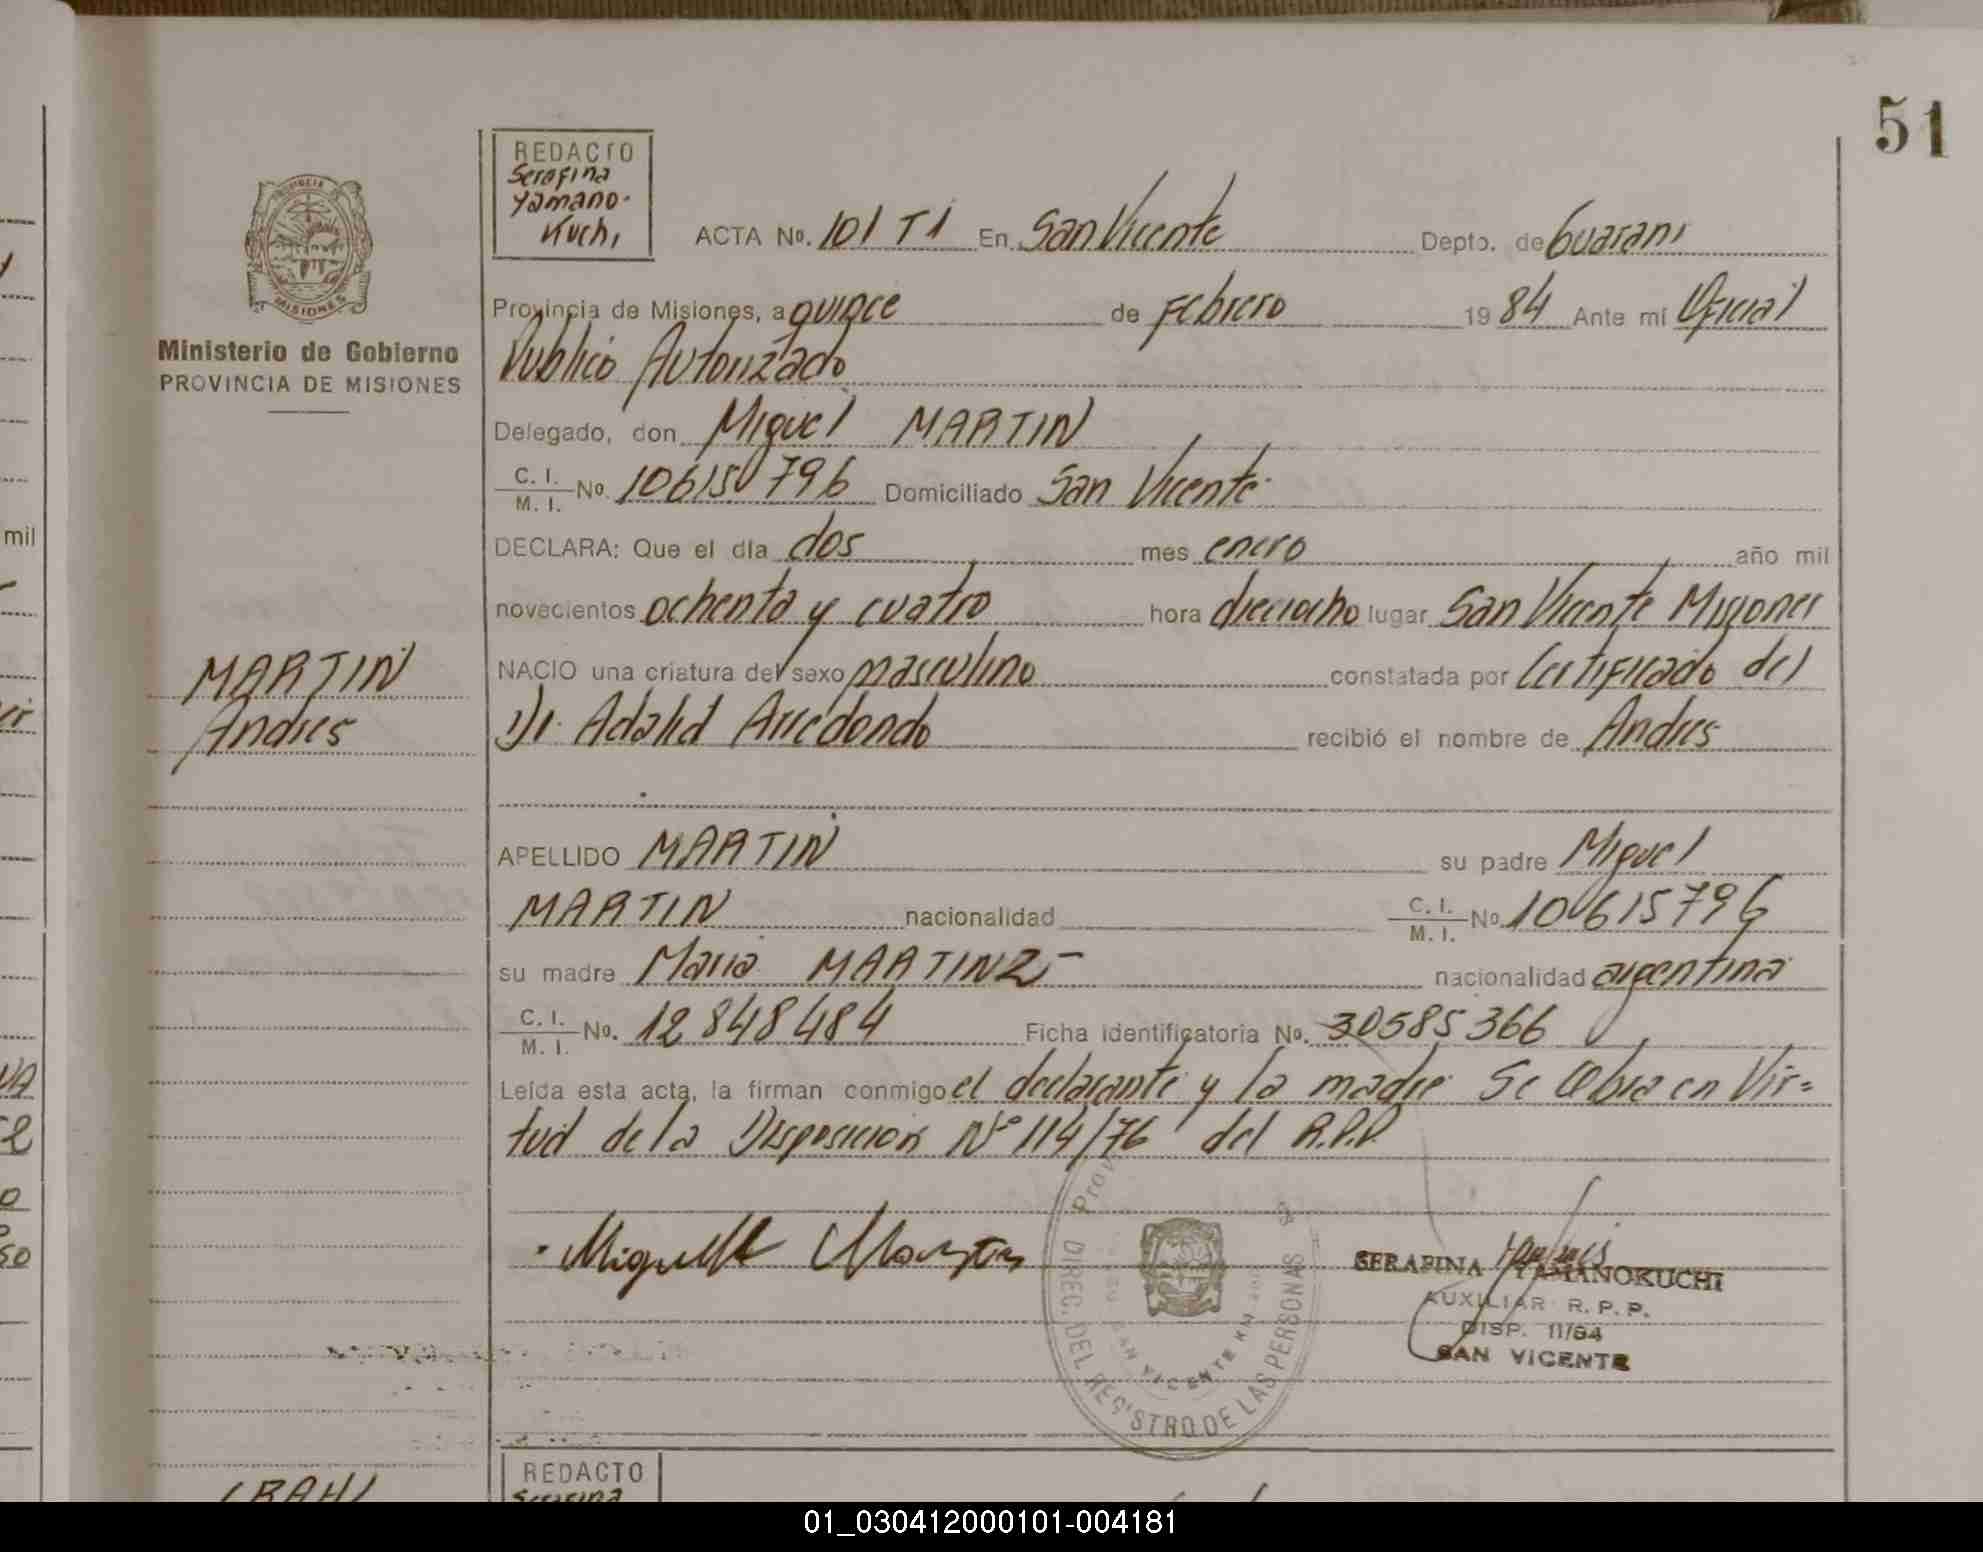 51
REDACTO
Serafina
Yamano-
Kuchi
ACTA No. 101 T1 En San Vicente Depto. de Guarani
PROVINCIA
MISIONES
Ministerio de Gobierno
PROVINCIA DE MISIONES
Provincia de Misiones, a quince de Febrero 1984 Ante mi Oficial
Publico Autorizado
Delegado, don Miguel MARTIN
C. I.
M. I. No. 10615796 Domiciliado San Vicente
mil
DECLARA: Que el día dos mes enero año mil
novecientos ochenta y cuatro hora dieciocho lugar San Vicente Misiones
MARTIN
Andres
NACIO una criatura del sexo masculino constatada por Certificado del
Dr. Adalid Arredondo recibió el nombre de Andres
APELLIDO MARTIN su padre Miguel
MARTIN nacionalidad C. I.
M. I. No. 10615796
su madre Maria MARTINZ- nacionalidad argentina
C. I.
M. I. No. 12848484 Ficha identificatoria No. 30585366
Leída esta acta, la firman conmigo el declarante y la madre Se labra en Vir=
tud de la Disposicion Nº 114/76 del R.P.P.
Miguel Martin
DIREC. DEL REGISTRO DE LAS PERSONAS
SAN VICENTE KM
SERAFINA YAMANOKUCHI
AUXILIAR R. P. P.
DISP. 11/84
SAN VICENTE
REDACTO
Serafina
01_030412000101-004181